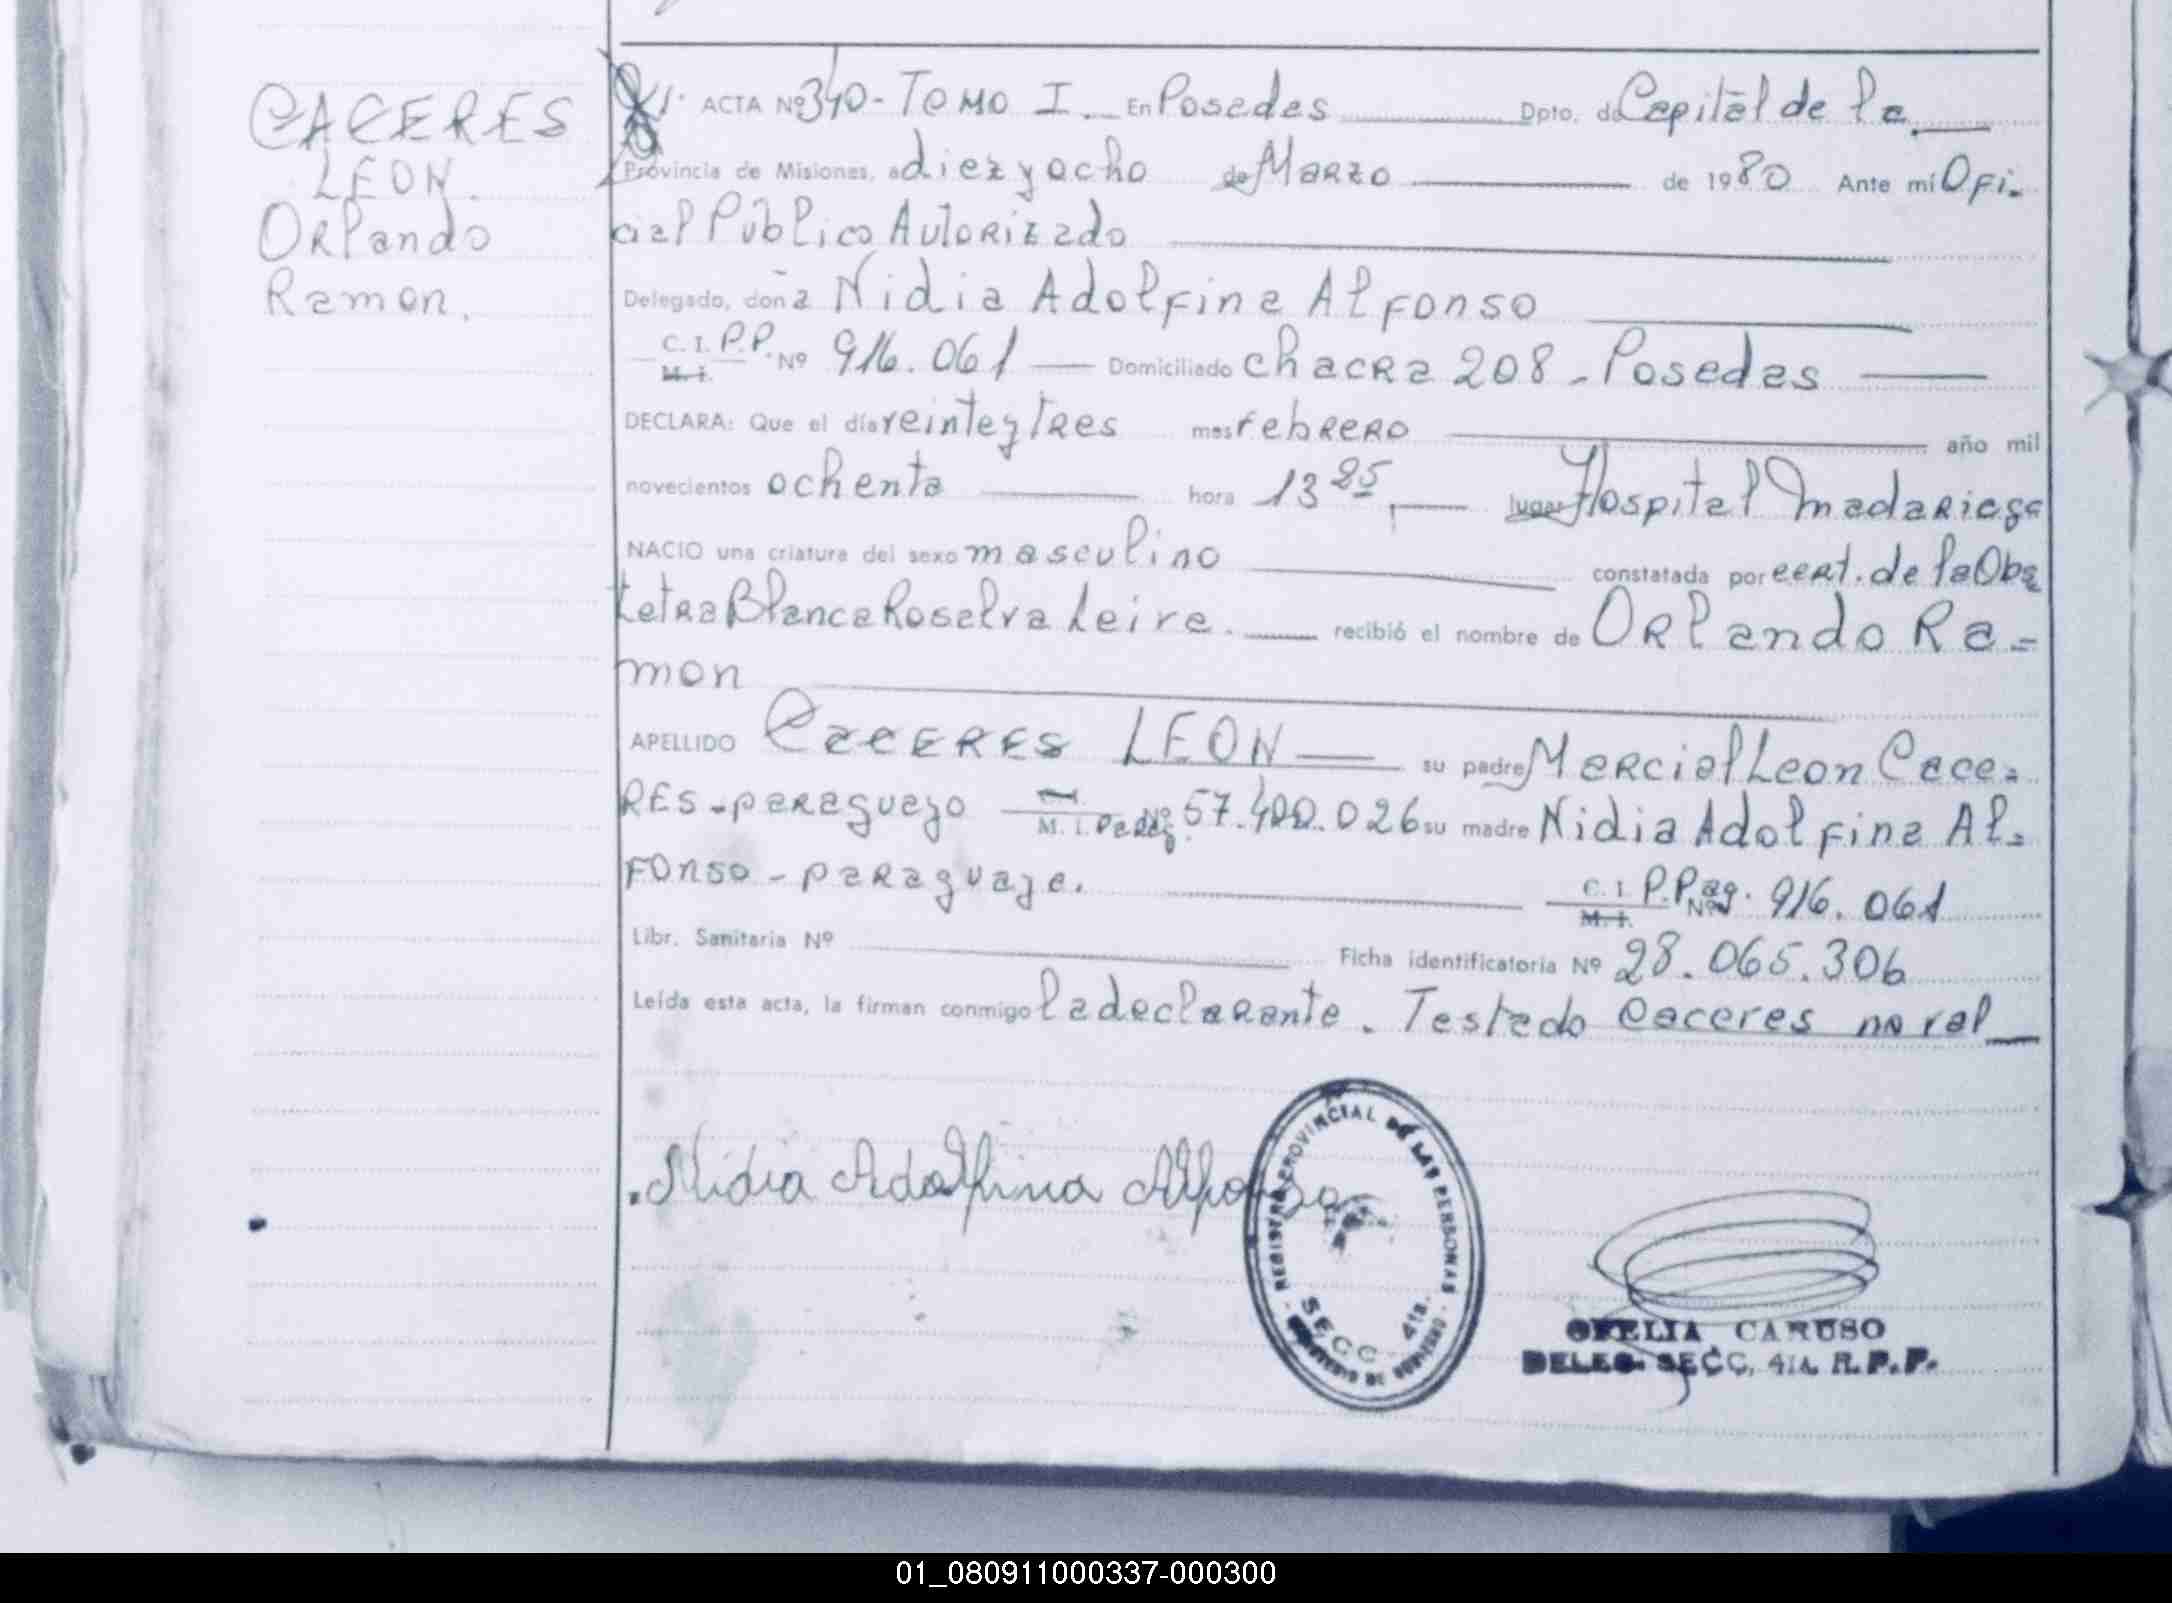 CACERES
LEON.
Orlando
Ramon.
ACTA Nº 340 - Tomo I. En Posadas Dpto. de Capital de la
Provincia de Misiones, a diez y ocho de Marzo de 1980 Ante mi Ofi-
cial Público Autorizado
Delegado, doña Nidia Adolfina Alfonso
C. I. P.P. Nº 916.061 Domiciliado chacra 208 - Posadas
M. I.
DECLARA: Que el día veinteytres mes febrero año mil
novecientos ochenta hora 13 25 lugar Hospital Madariaga
NACIO una criatura del sexo masculino constatada por cert. de la Obs
tetra Blanca Rosalva Leiva. recibió el nombre de Orlando Ra-
mon
APELLIDO CACERES LEON su padre Marcial Leon Cace-
RES - paraguayo M. I. Nº 57.400.026 su madre Nidia Adolfina Al-
Fonso - paraguaya. C. I. P. Pag. Nº 916.061
M. I.
Libr. Sanitaria Nº Ficha identificatoria Nº 28.065.306
Leída esta acta, la firman conmigo la declarante. Testado Caceres no val
Nidia Adolfina Alfonso
REGISTRO PROVINCIAL DE LAS PERSONAS
SECC. 4ta.
MINISTERIO DE GOBIERNO
OFELIA CARUSO
DELEG. SECC. 4ta. R.P.P.
01_080911000337-000300